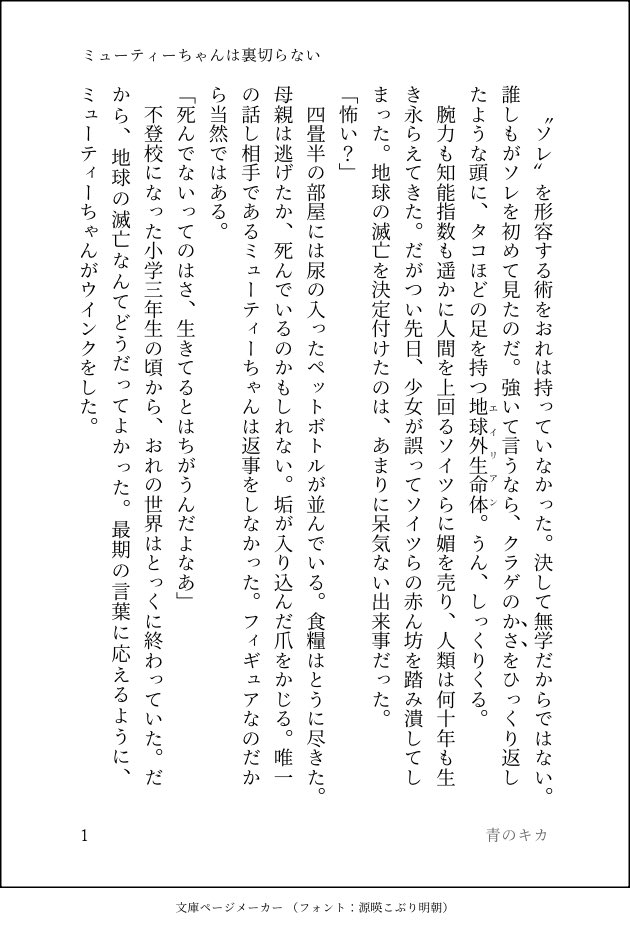 ミューティーちゃんは裏切らない
〝ソレ〟を形容する術をおれは持っていなかった。決して無学だからではない。
誰しもがソレを初めて見たのだ。強いて言うなら、クラゲのかさをひっくり返し
たような頭に、タコほどの足を持つ地球外生命体。うん、しっくりくる。
エイリアン
腕力も知能指数も遥かに人間を上回るソイツらに媚を売り、人類は何十年も生
き永らえてきた。だがつい先日、少女が誤ってソイツらの赤ん坊を踏み潰してし
まった。地球の滅亡を決定付けたのは、あまりに呆気ない出来事だった。
「怖い？」
四畳半の部屋には尿の入ったペットボトルが並んでいる。食糧はとうに尽きた。
母親は逃げたか、死んでいるのかもしれない。垢が入り込んだ爪をかじる。唯一
の話し相手であるミューティーちゃんは返事をしなかった。フィギュアなのだか
ら当然ではある。
「死んでないってのはさ、生きてるとはちがうんだよなあ」
不登校になった小学三年生の頃から、おれの世界はとっくに終わっていた。だ
から、地球の滅亡なんてどうだってよかった。最期の言葉に応えるように、
ミューティーちゃんがウインクをした。
1
青のキカ
文庫ページメーカー （フォント：源暎こぶり明朝）